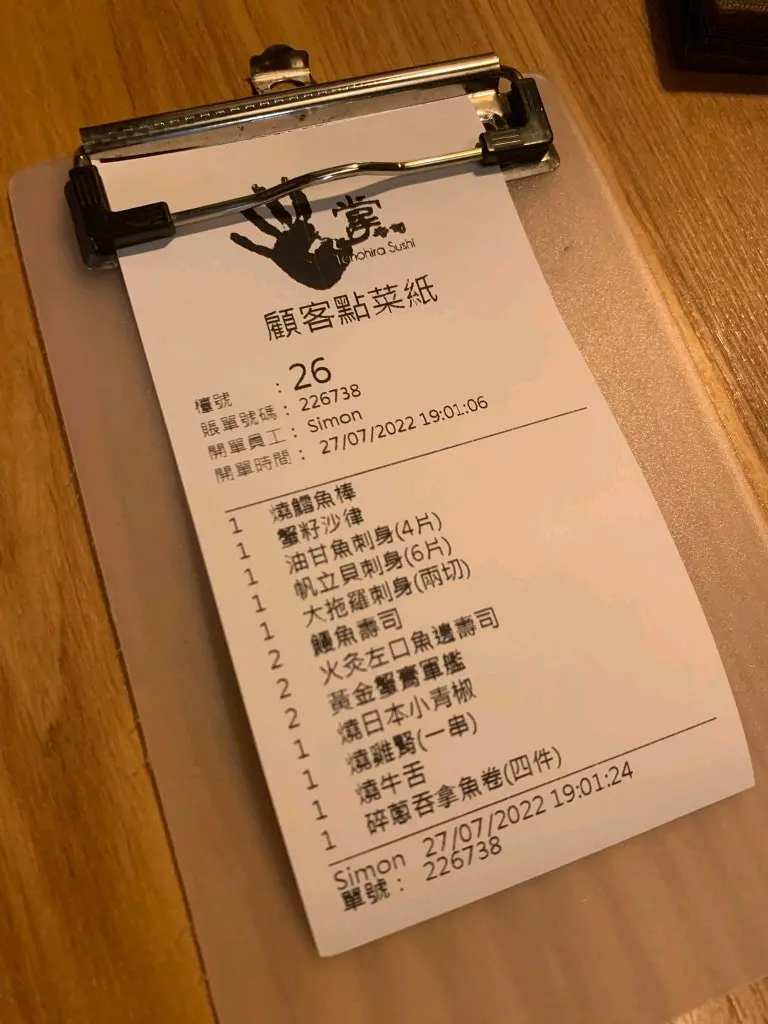 掌
Tenohira Sushi
顧客點菜紙
檯號 : 26
賬單號碼 : 226738
開單員工 : Simon
開單時間 : 27/07/2022 19:01:06
1 燒鱈魚棒
1 蟹籽沙律
1 油甘魚刺身(4片)
1 帆立貝刺身(6片)
1 大拖羅刺身(兩切)
2 鰻魚壽司
2 火灸左口魚邊壽司
2 黃金蟹膏軍艦
1 燒日本小青椒
1 燒雞腎(一串)
1 燒牛舌
1 碎蔥吞拿魚卷(四件)
Simon 27/07/2022 19:01:24
單號 : 226738